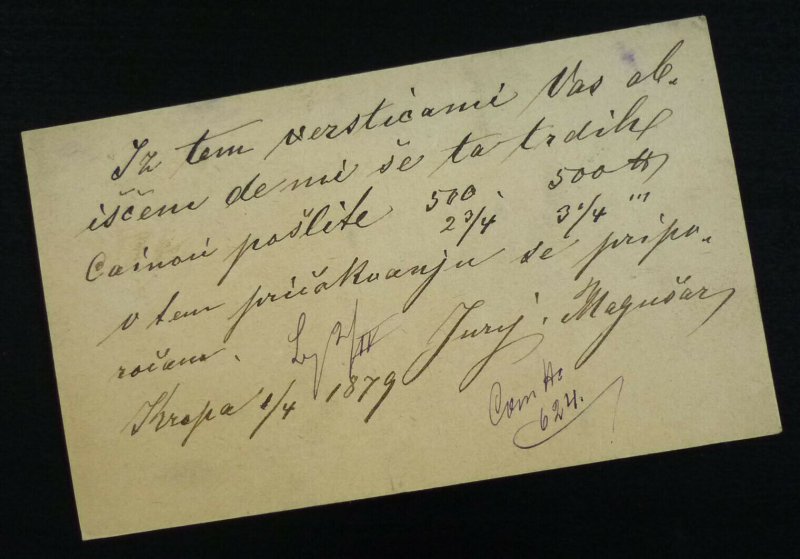 Iz tem versticami Vas ob-
iščem de mi še ta trdih
Cainou pošlite 500 500 ℔
2 3/4 3 1/4 '''
v tem pričakvanju se pripo-
ročam. Jurij. Magušar
Kropa 1/4 1879
Com No
624.